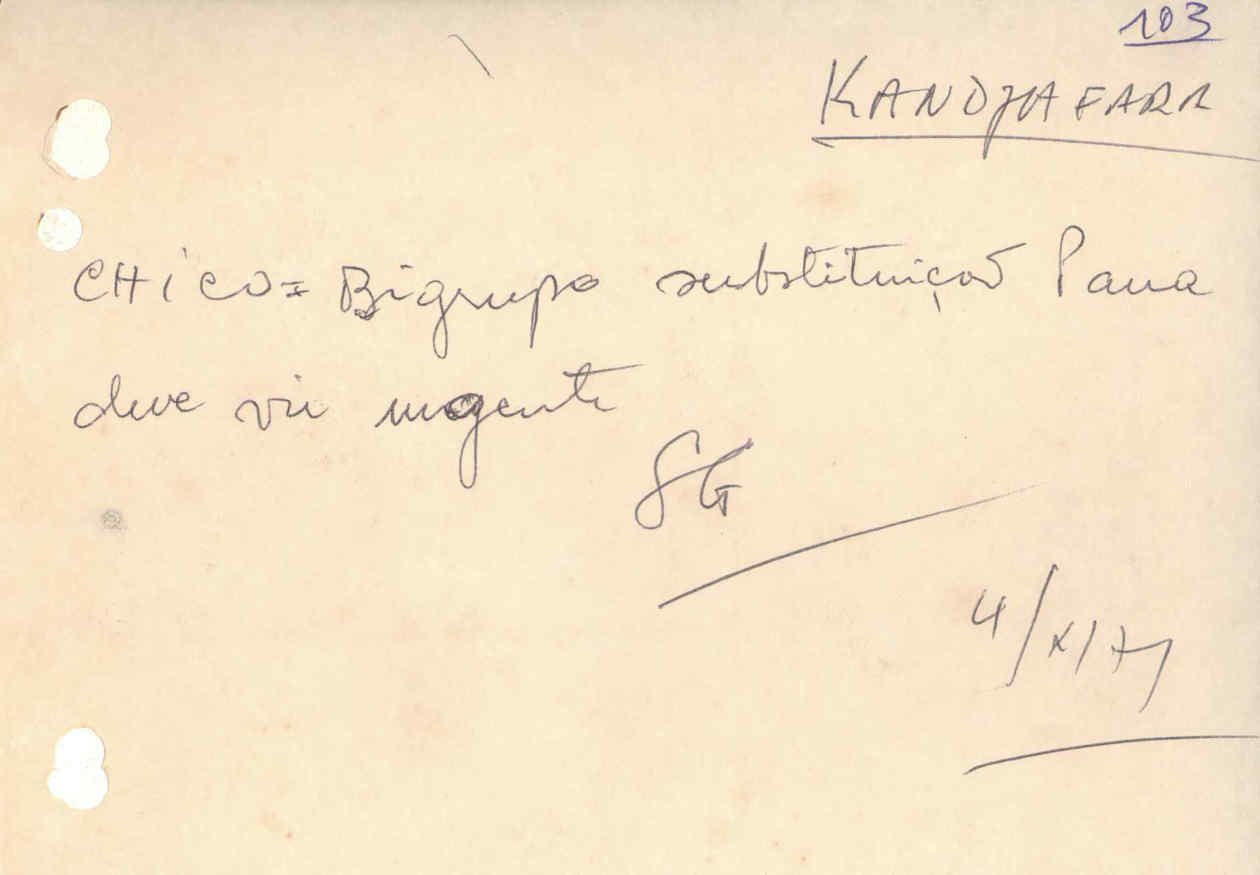 103
KANDJAFARA
CHICO = Bigrupo substituição Pana
deve vir urgente
SG
4/X/71